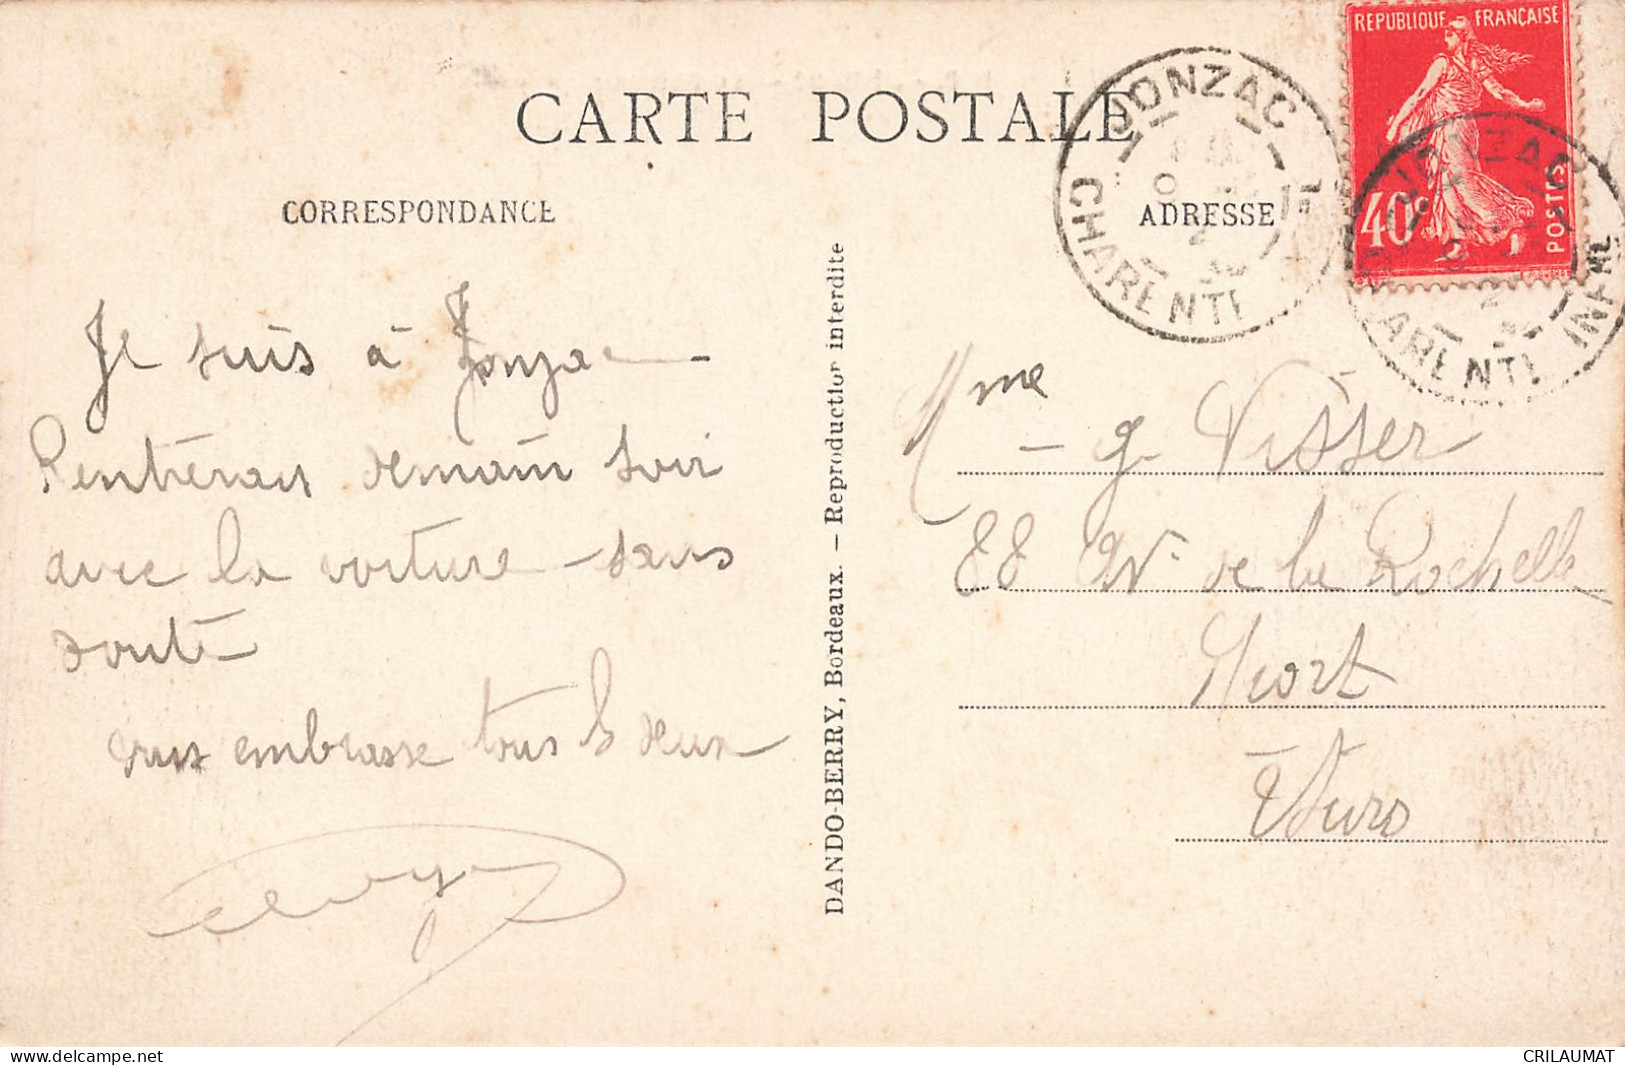 CARTE POSTALE
CORRESPONDANCE
ADRESSE
Je suis à Jonzac -
Rentrerai demain soir
avec la voiture - sans
doute -
vous embrasse tous les deux
DANDO-BERRY, Bordeaux. — Reproduction interdite
JONZAC
REPUBLIQUE FRANÇAISE
40c
POSTES
JONZAC
Mme G. Visser
88 Av. de la Rochelle
Niort
CRILAUMAT
delcampe.net